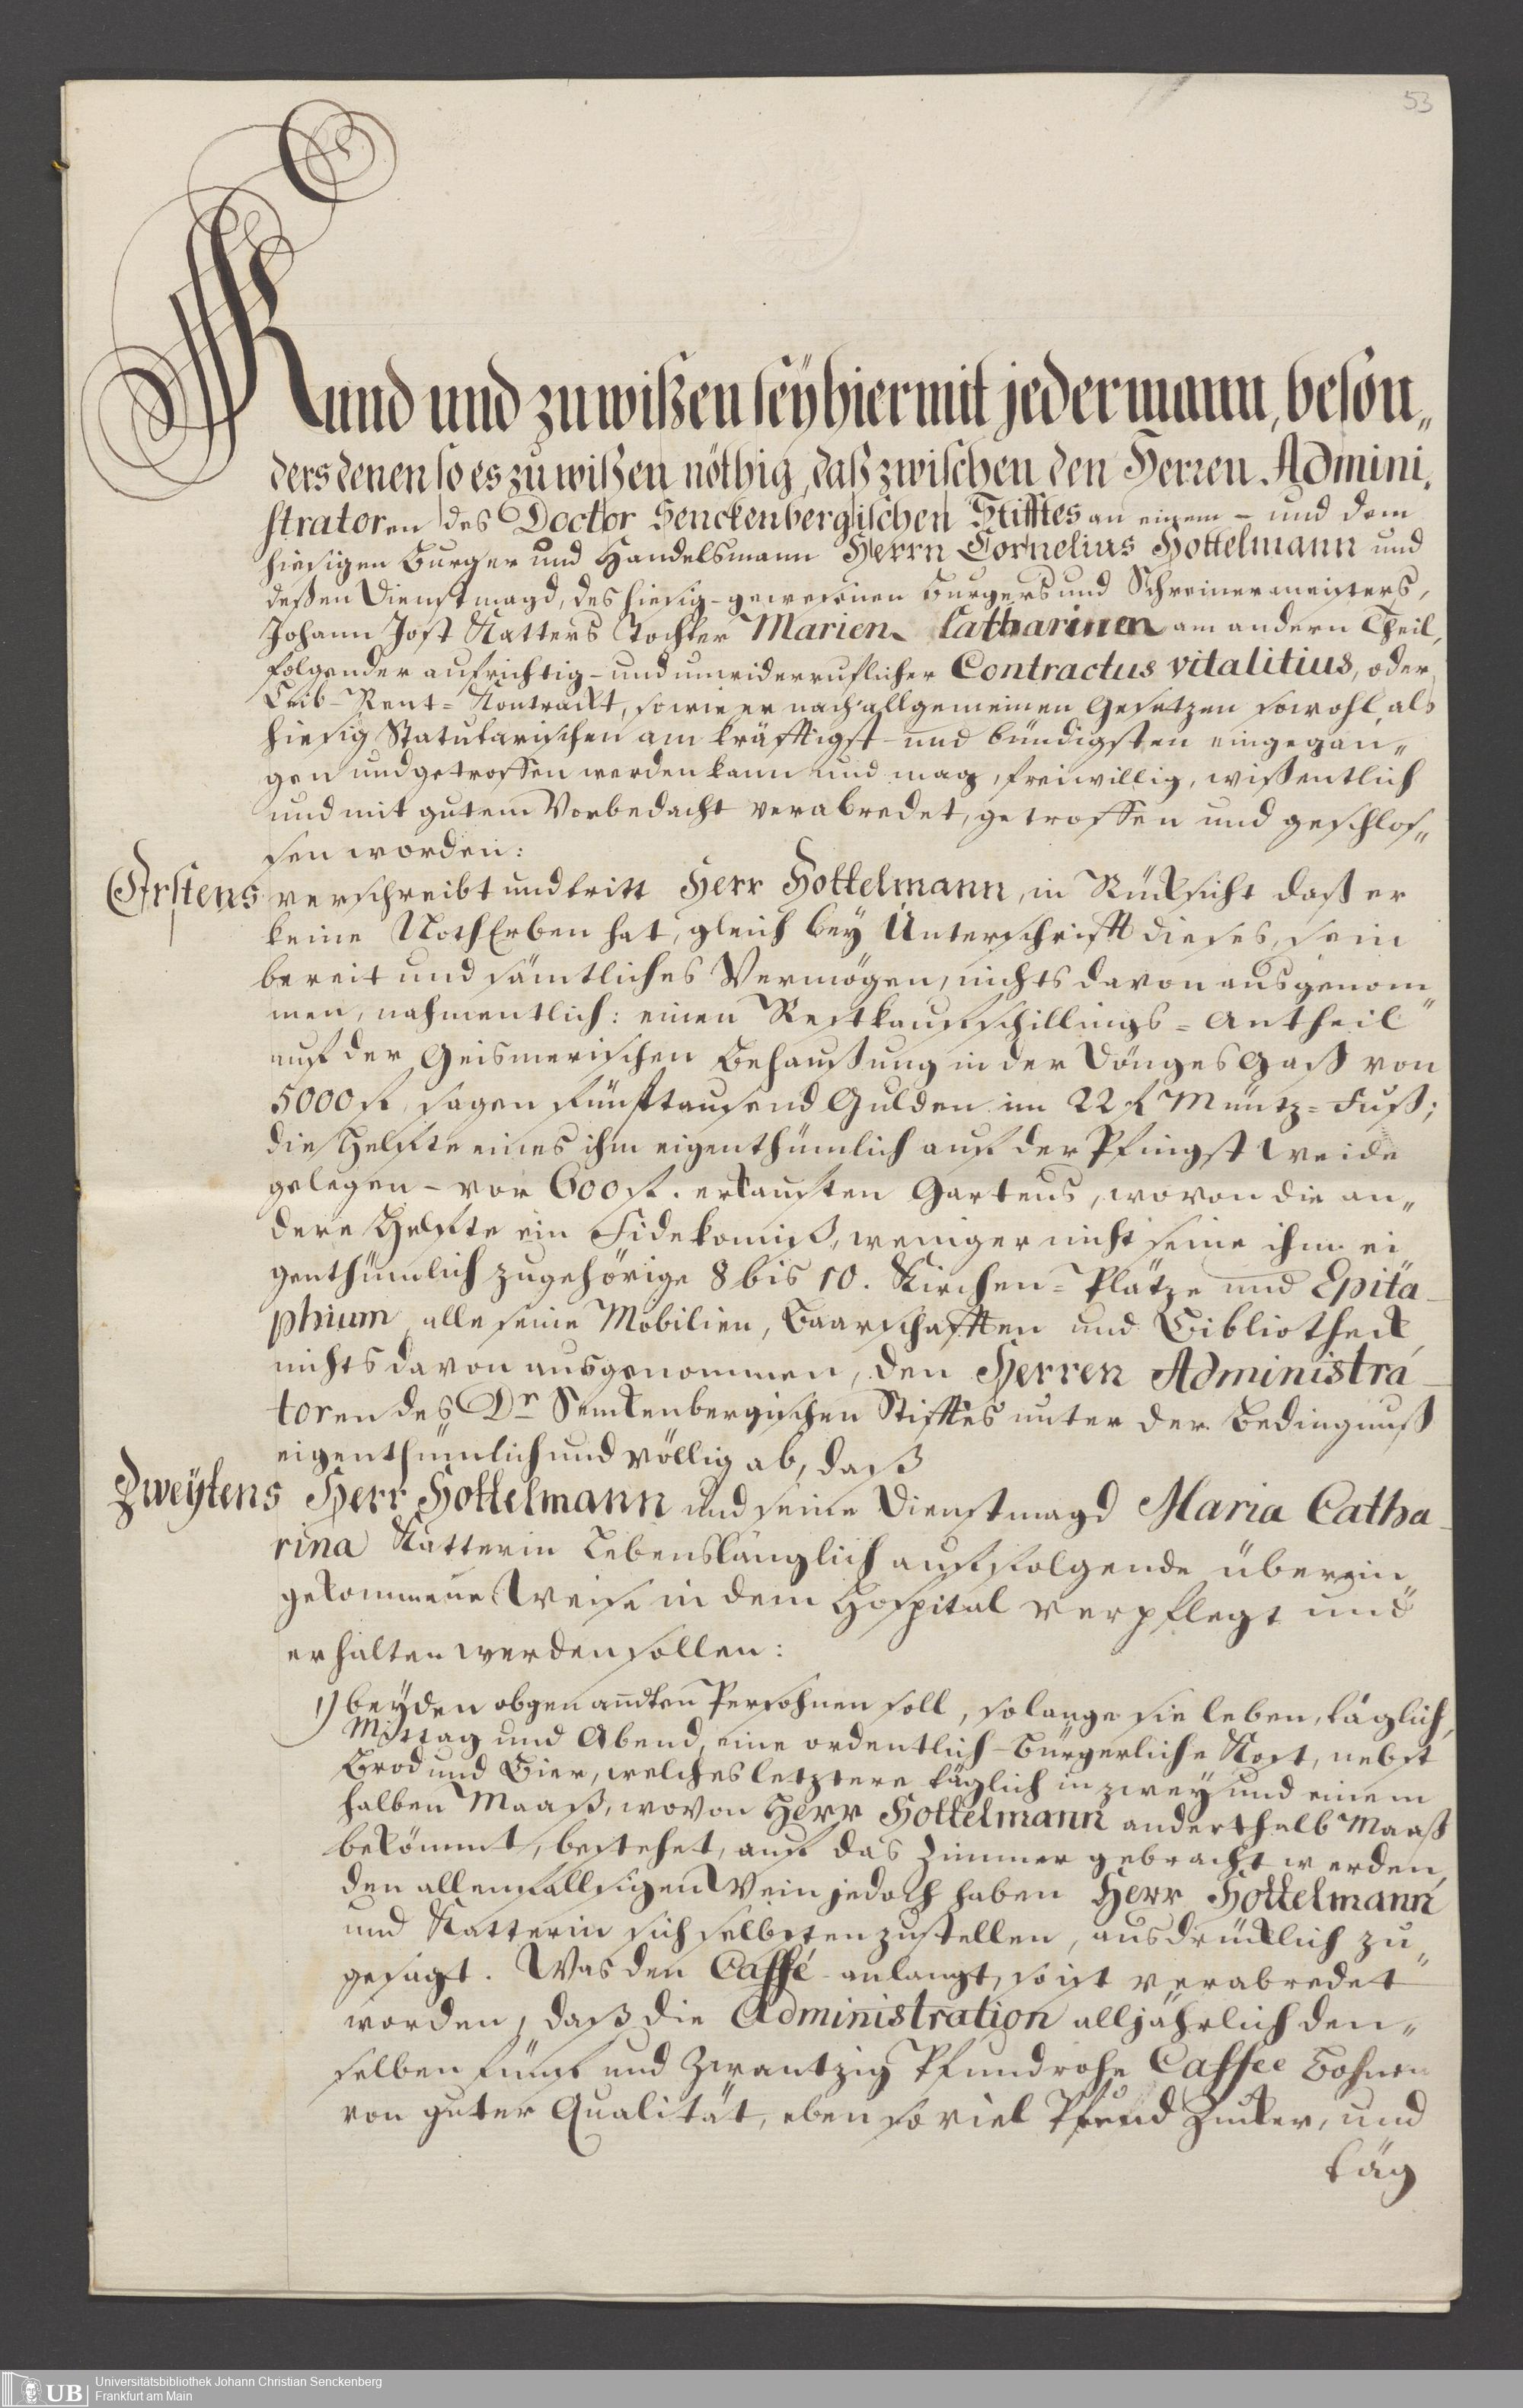 53
Kund und zu wißen seÿ hiermit jedermann, beson„
ders denen so es zu wißen nöthig, daß zwischen den Herren Admini„
stratoren des Doctor Senckenbergischen Stifftes an einem – und dem
hiesigen Burger und Handelsmann Herrn Cornelius Hottelmann und
deßen Dienstmagd, des hiesig-gewesenen Burgers und Schreinermeisters,
Johann Jost Katters Tochter Marien Catharinen am andern Theil,
folgender aufrichtig- und unwiderruflicher Contractus vitalitius, oder
Leib-Rent-Kontrackt, so wie er nach allgemeinen Gesetzen sowohl, als
hiesig Statutarischen am kräfftigst- und bündigsten eingegan„
gen und getroffen werden kann und mag, freiwillig, wißentlich
und mit gutem Vorbedacht verabredet, getroffen und geschlos„
sen worden:
Erstens verschreibt und tritt Herr Hottelmann, in Rücksicht daß er
keine NothErben hat, gleich beÿ Unterschrifft dieses, sein
bereit und sämtliches Vermögen, nichts davon ausgenom„
men, nahmentlich: einen Restkaufschillings-Antheil
auf der Geismerischen Behaußung in der Dönges Gaß von
5000 fl, sagen fünftausend Gulden im 22 fl Müntz-Fuß;
die Helfte eines ihm eigenthümlich auf der Pfingst Weide
gelegen – vor 600 fl. erkauften Gartens, wovon die an„
dere Helfte ein Fidekomiß, weniger nicht seine ihm ei
genthümlich zugehörige 8 bis 10. Kirchen-Plätze und Epita-
phium, alle seine Mobilien, Baarschafften und Bibliotheck,
nichts davon ausgenommen, den Herren Administra-
toren des Dr Senckenbergischen Stifftes unter der Bedingnuß
eigenthümlich und völlig ab, daß
Zweÿtens Herr Hottelmann und seine Dienstmagd Maria Catha-
rina Katterin Lebenslänglich auf folgende überein„
gekommene Weise in dem Hospital verpflegt und
erhalten werden sollen:
1) beÿden obgenandten Persohnen soll, solange sie leben, täglich,
Mittag und Abend, eine ordentlich-bürgerliche Kost, nebst
Brod und Bier, welches letztere täglich in zweÿ und einem
halben Maaß, wovon Herr Hottelmann anderthalb Maaß
bekömmt, bestehet, auf das Zimmer gebracht werden,
den allenfallsigen Wein jedoch haben Herr Hottelmann
und Katterin sich selbsten zustellen, ausdrücklich zu„
gesagt. Was den Caffé anlangt, so ist verabredet
worden, daß die Administration alljährlich den„
selben fünf und Zwantzig Pfund rohe Caffee Bohnen
von guter Qualität, eben so viel Pfund Zucker, und
täg
UB Universitätsbibliothek Johann Christian Senckenberg
Frankfurt am Main